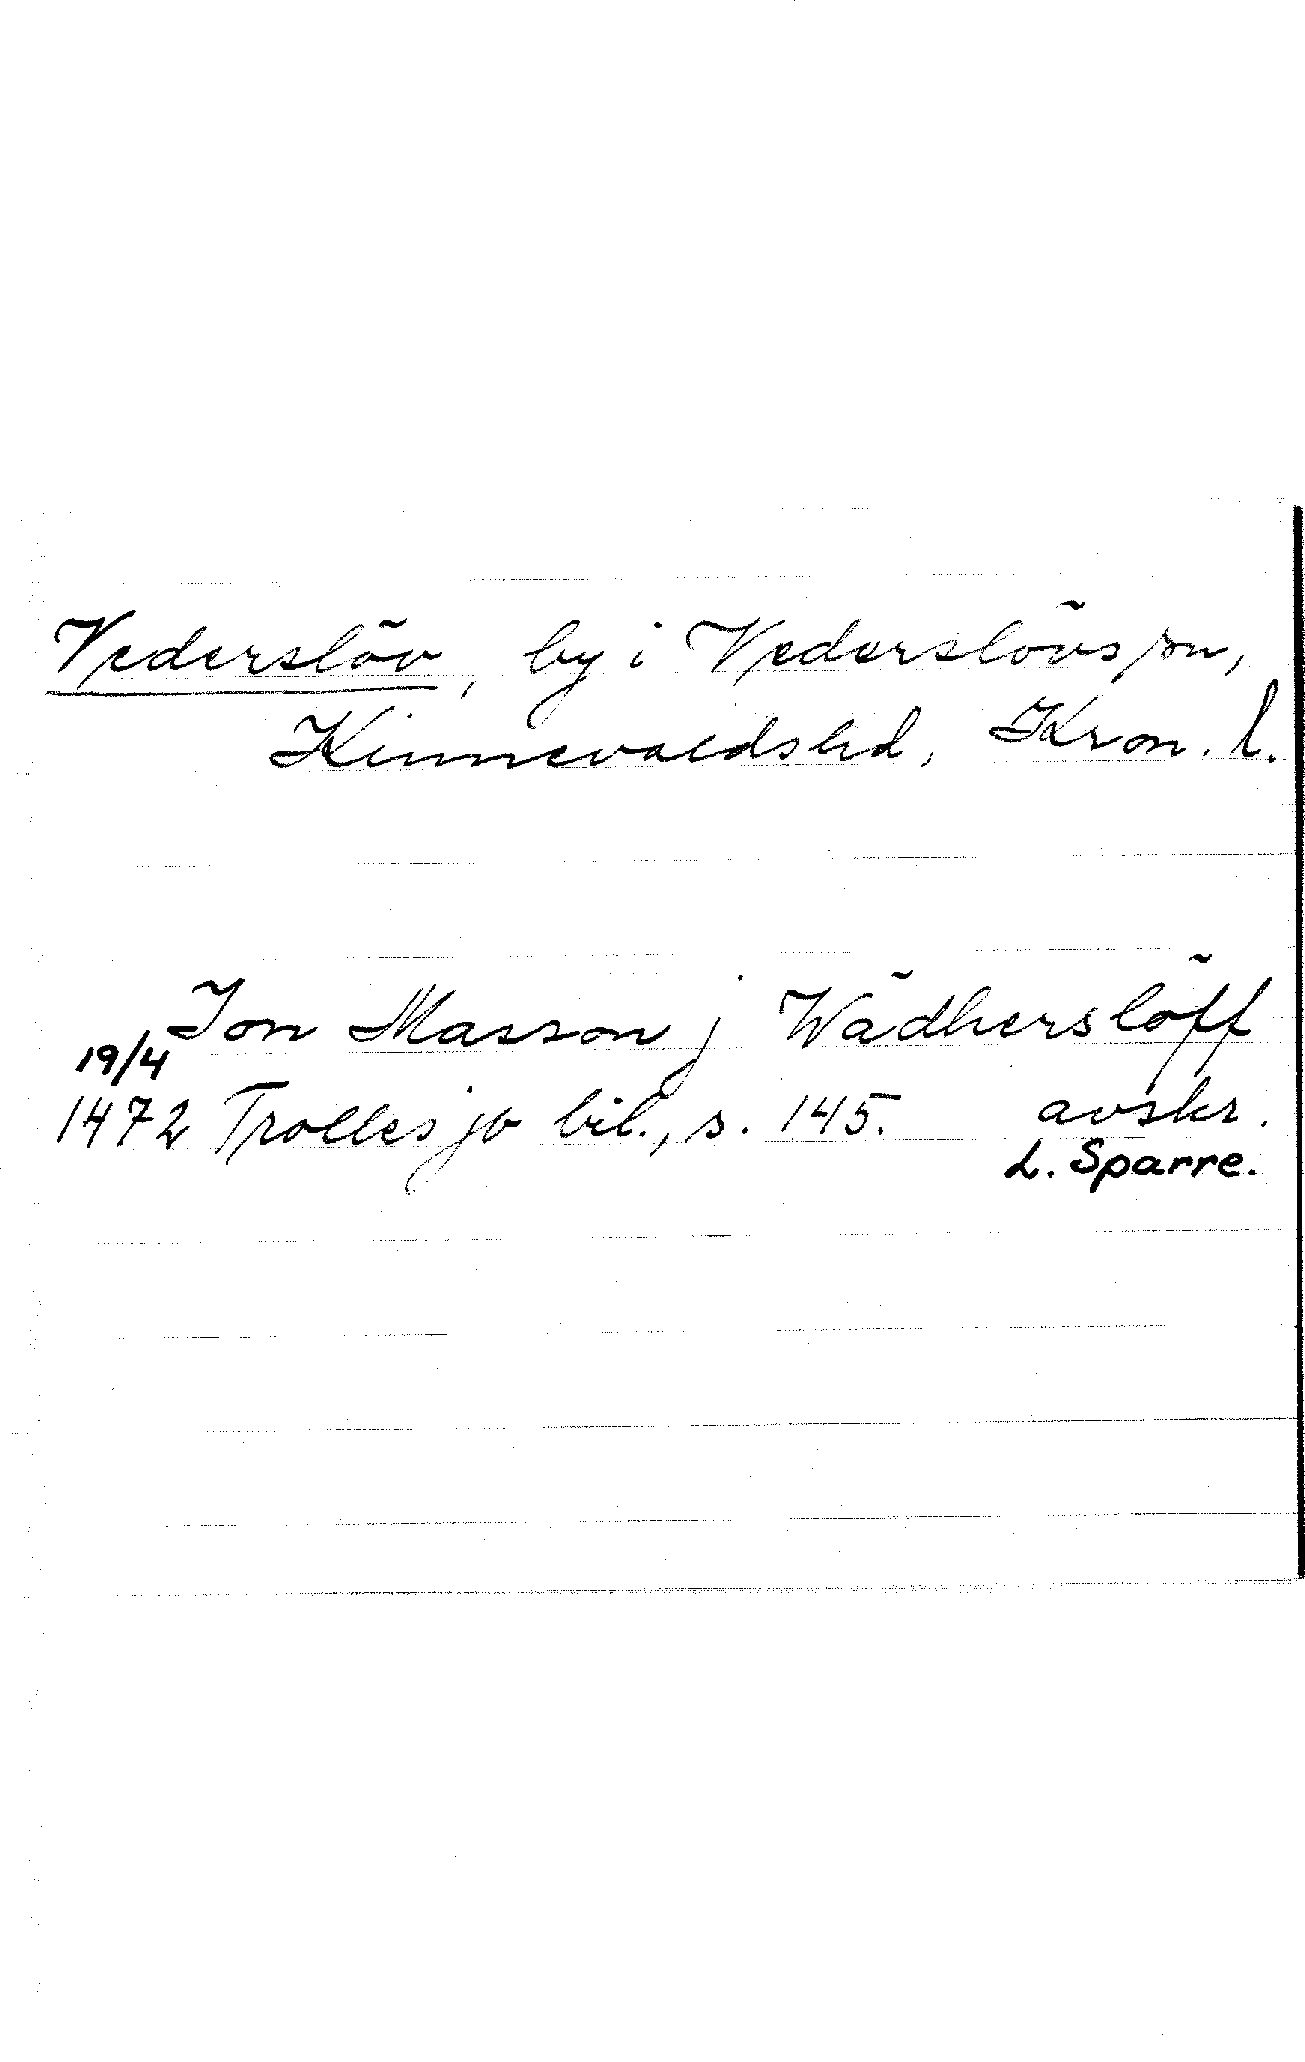 Vederslöv, by i Vederslövs sn,
Kinnevalds hd, Kron. l.
Jon Masson j Wädherslöff
19/4
1472 Trolles jb bil., s. 145. avskr.
L. Sparre.